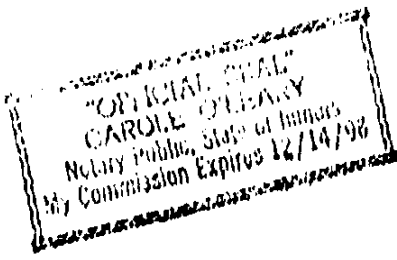 "OFFICIAL SEAL"
CAROLE O'LEARY
Notary Public, State of Illinois
My Commission Expires 12/14/98